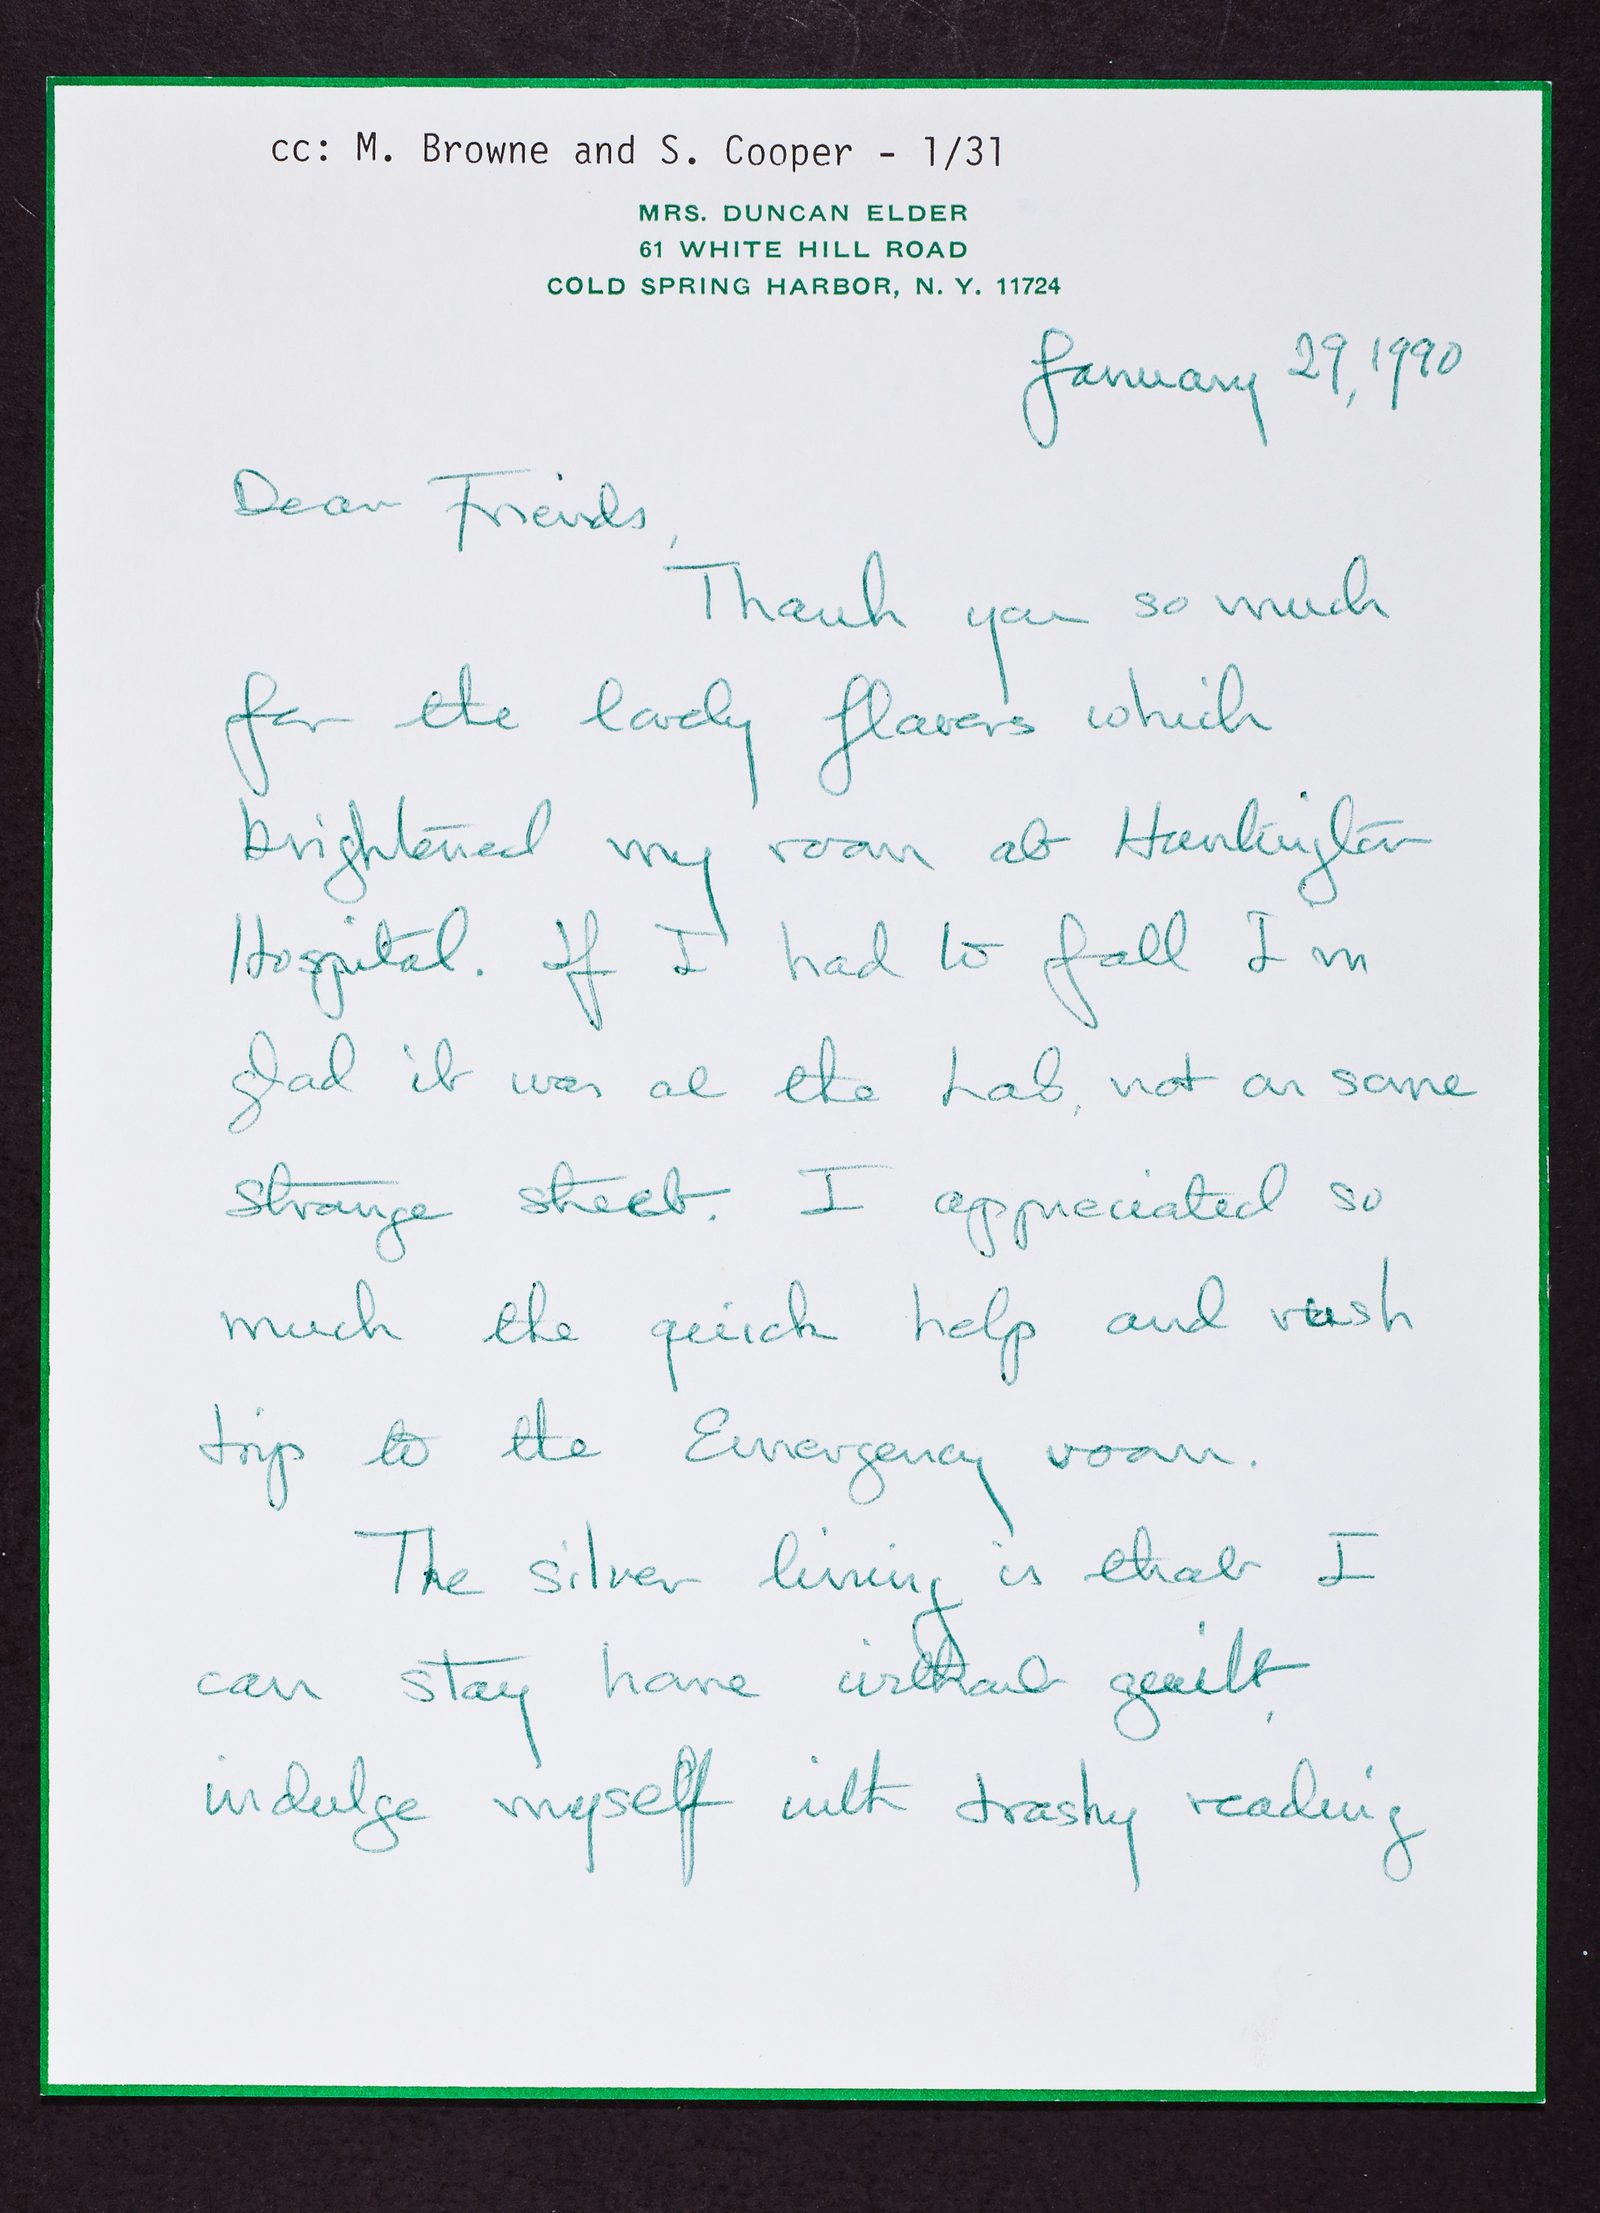 cc: M. Browne and S. Cooper - 1/31
MRS. DUNCAN ELDER
61 WHITE HILL ROAD
COLD SPRING HARBOR, N. Y. 11724
January 29, 1990
Dear Friends,
Thank you so much
for the lovely flowers which
brightened my room at Huntington
Hospital. If I had to fall I'm
glad it was at the Lab, not on some
strange street. I appreciated so
much the quick help and rush
trip to the Emergency room.
The silver lining is that I
can stay home without guilt,
indulge myself with trashy reading